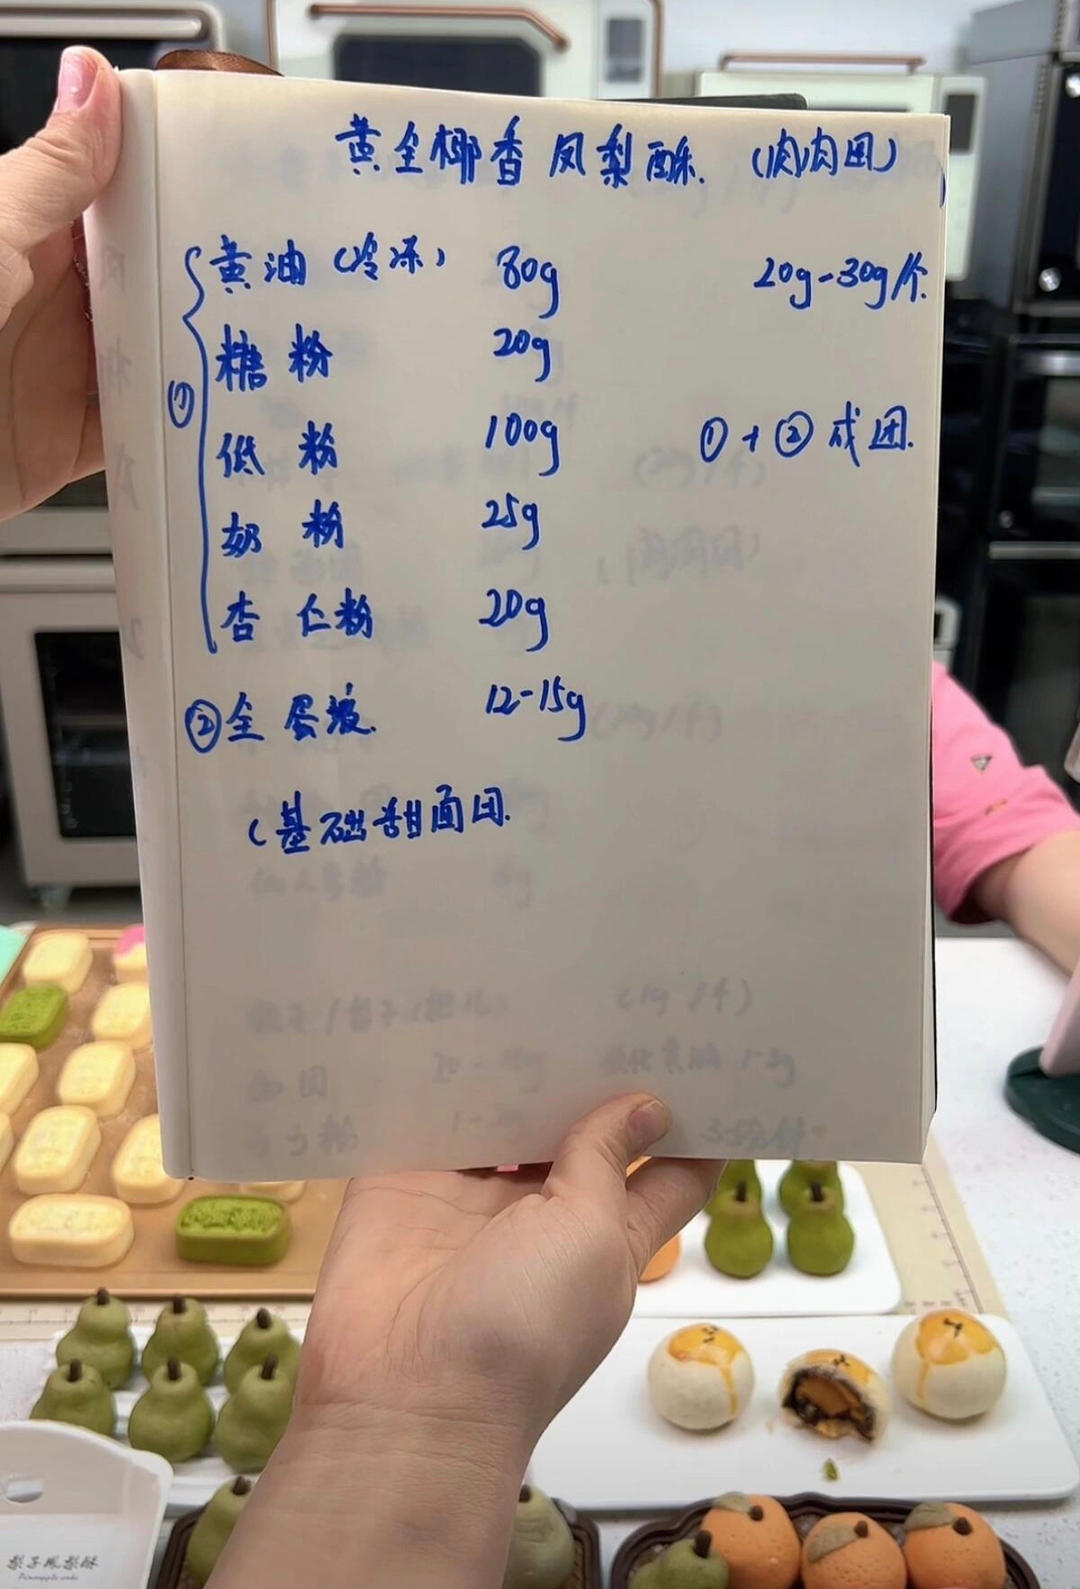 黄金椰香凤梨酥.（肉肉团）
黄油（冷冻） 80g 20g-30g/个
糖粉 20g
① 低粉 100g ①+②成团.
奶粉 25g
杏仁粉 20g
②全蛋液. 12-15g
（基础甜面团.